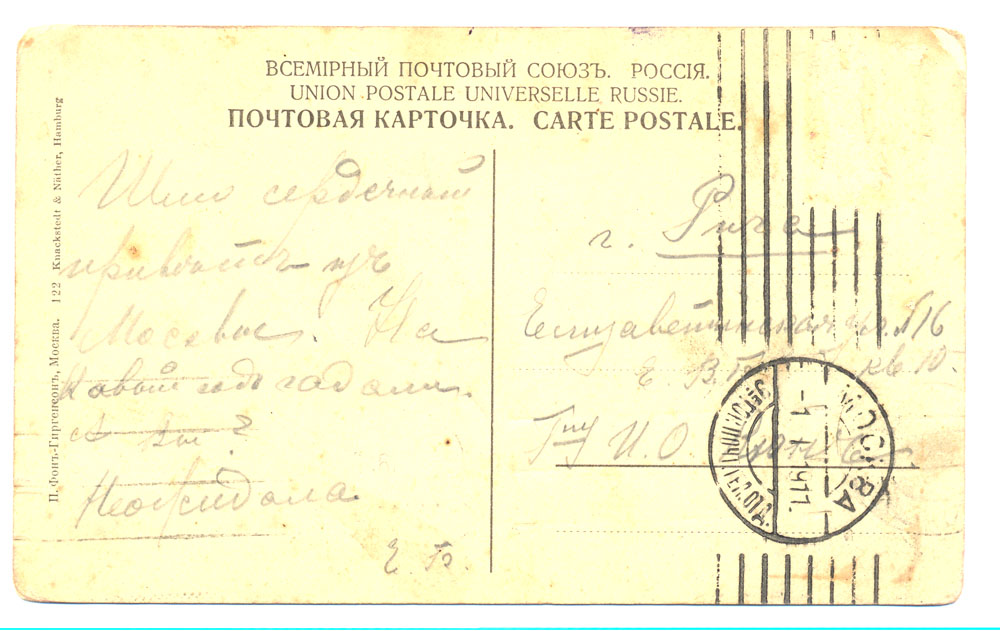 ВСЕМІРНЫЙ ПОЧТОВЫЙ СОЮЗЪ. РОССІЯ.
UNION POSTALE UNIVERSELLE RUSSIE.
ПОЧТОВАЯ КАРТОЧКА. CARTE POSTALE.
П. Фонъ-Гиргенсонъ, Москва. 122 Knackstedt & Näther, Hamburg
Шлю сердечный
изъ
Москвы. На
Новый годъ гадали.
А вы?
Неожидала
Е. Б.
г. Рига
Елизаветинская ул. №16
кв. 10.
Гну И. О.
МОСКВА
1911.